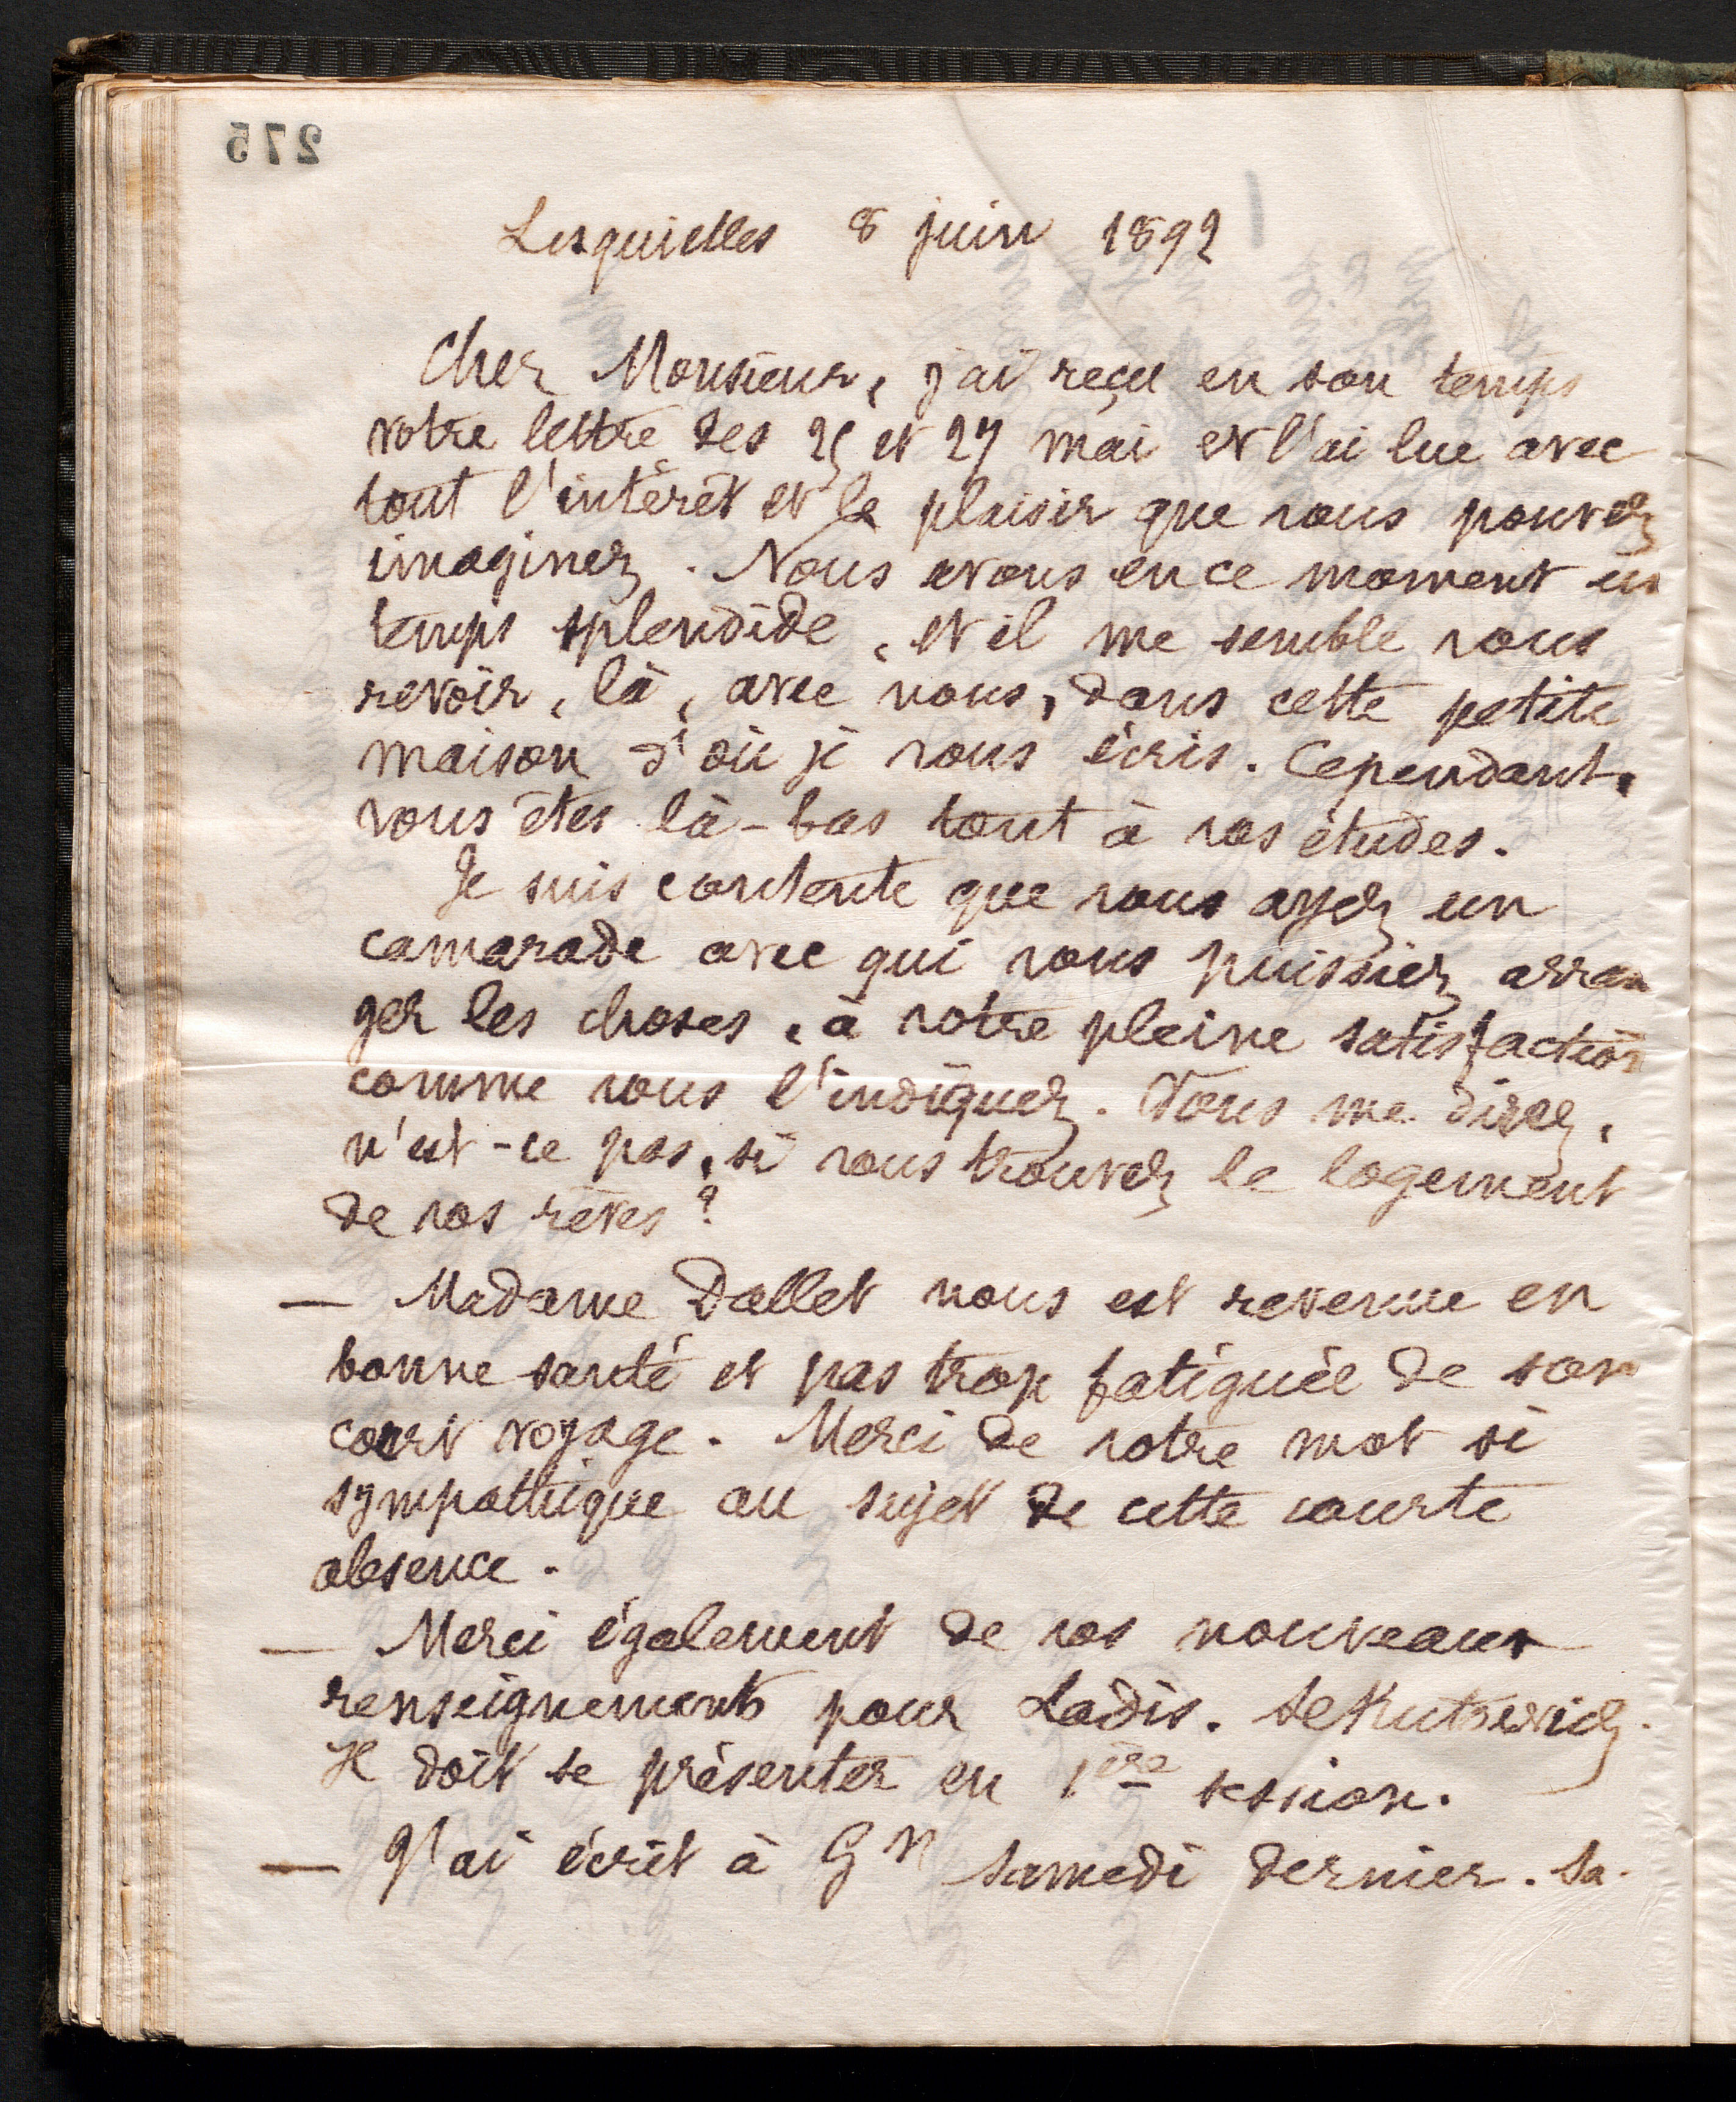 275
Lesquielles 8 juin 1892
Cher Monsieur, j'ai reçu en son temps
votre lettre des 25 et 27 mai et l'ai lue avec
tout l'intérêt et le plaisir que vous pouvez
imaginez. Nous avons en ce moment un
temps splendide, et il me semble vous
revoir, là, avec nous, dans cette petite
maison d'où je vous écris. Cependant,
vous êtes là-bas tout à vos études.
Je suis contente que vous ayez un
camarade avec qui vous puissiez arran
ger les choses, à votre pleine satisfaction
comme vous l'indiquez. Vous me direz,
n'est-ce pas, si vous trouvez le logement
de vos rêves?
— Madame Dallet nous est revenue en
bonne santé et pas trop fatiguée de son
court voyage. Merci de votre mot si
sympathique au sujet de cette courte
absence.
— Merci également de vos nouveaux
renseignements pour Ladis.
Il doit se présenter en 1ère session.
— J'ai écrit à Gn samedi dernier. Sa